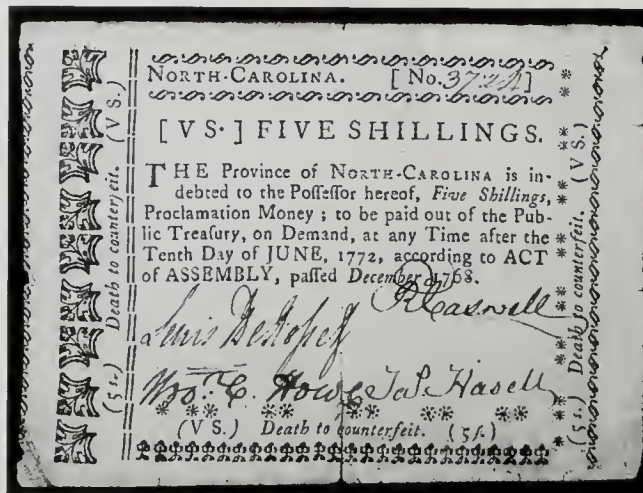 NORTH-CAROLINA. [ No. 3724 ]
[ VS. ] FIVE SHILLINGS.
THE Province of NORTH-CAROLINA is in-
debted to the Poſſeſſor hereof, Five Shillings,
Proclamation Money ; to be paid out of the Pub-
lic Treaſury, on Demand, at any Time after the
Tenth Day of JUNE, 1772, according to ACT
of ASSEMBLY, paſſed December 1768.
RCaswell
Lewis
Thos. C. Howe Jas. Hasell
(VS.) Death to counterfeit. (5ſ.)
(5ſ.) Death to counterfeit. (VS.)
(5ſ.) Death to counterfeit. (VS.)